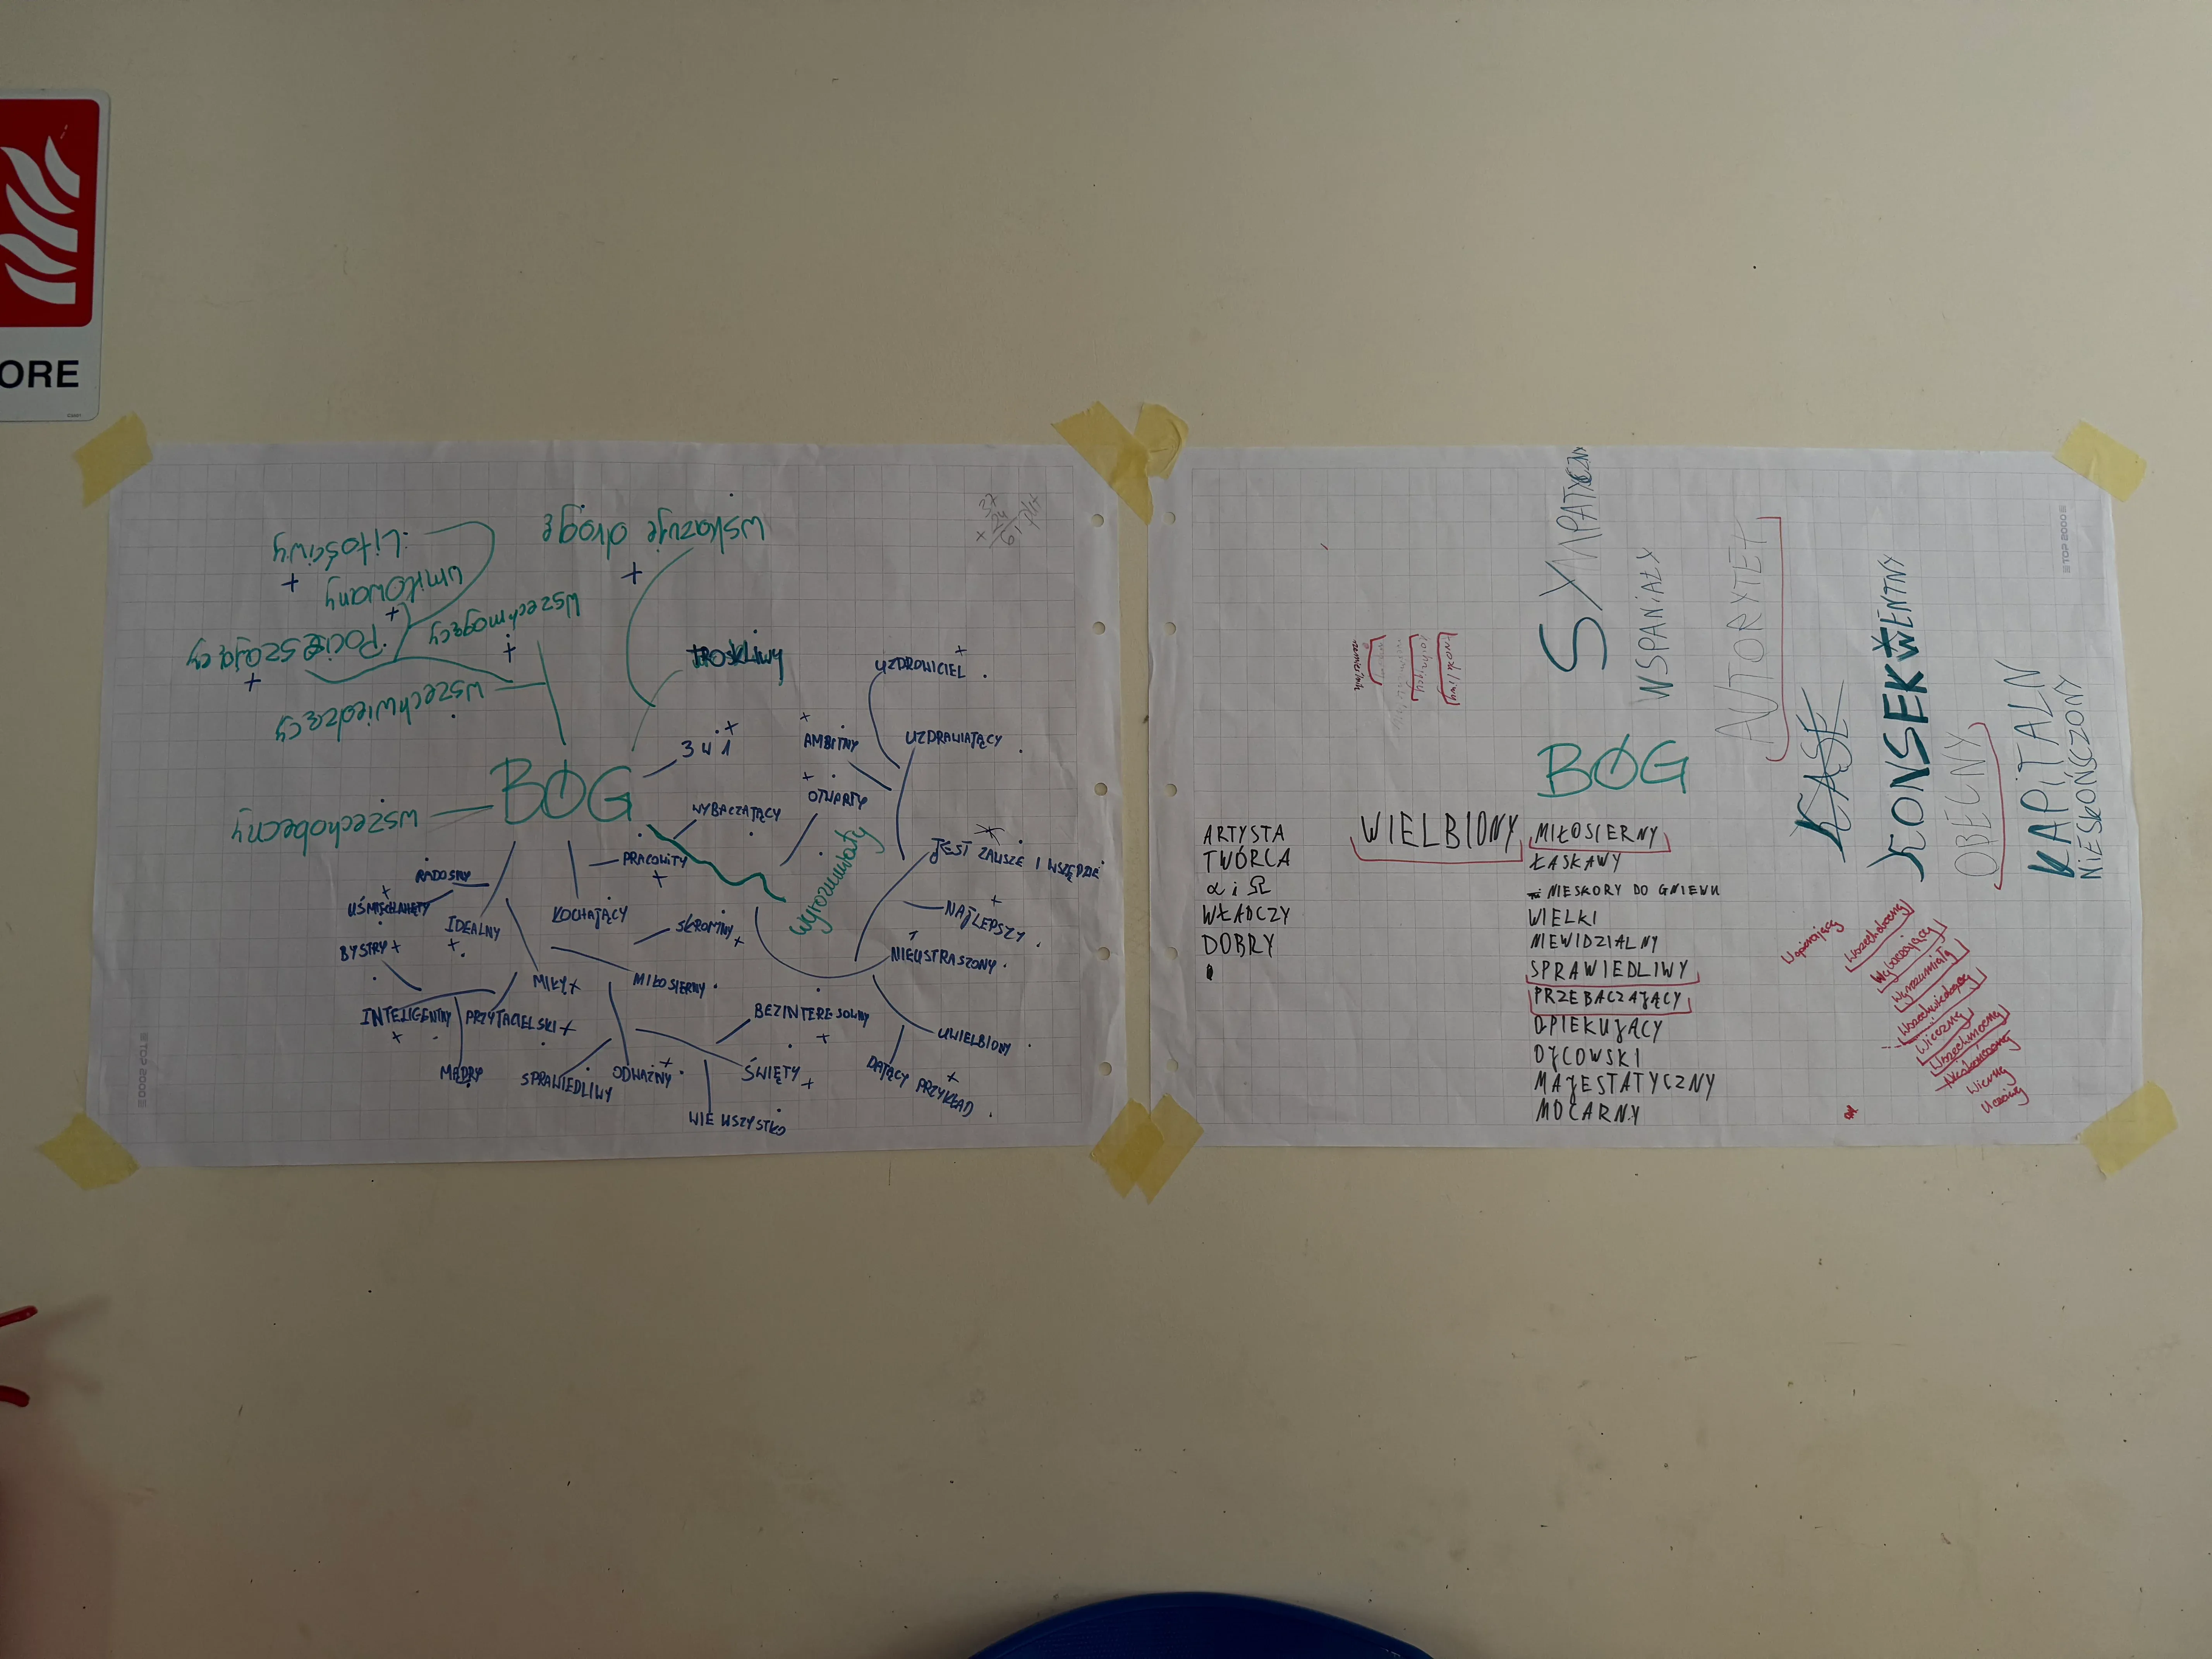 ORE
wskazuje drogę
Litościwy
umiłowany
wszechmogący
Pocieszający
wszechwiedzący
wszechobecny
BÓG
TROSKLIWY
3 W 1
WYBACZAJĄCY
PRACOWITY
KOCHAJĄCY
RADOSNY
UŚMIECHNIĘTY
IDEALNY
BYSTRY
INTELIGENTNY
MĄDRY
PRZYJACIELSKI
MIŁY
SKROMNY
MIŁOSIERNY
SPRAWIEDLIWY
ODWAŻNY
BEZINTERESOWNY
ŚWIĘTY
WIE WSZYSTKO
wyrozumiały
OTWARTY
AMBITNY
UZDROWICIEL
UZDRAWIAJĄCY
JEST ZAWSZE I WSZĘDZIE
NAJLEPSZY
NIEUSTRASZONY
UWIELBIONY
DAJĄCY PRZYKŁAD
37
24
61
TOP 2000
SYMPATYCZNY
WSPANIAŁY
AUTORYTET
KONSEKWENTNY
OBECNY
KAPITALN
NIESKOŃCZONY
TOP 2000
BÓG
ARTYSTA
TWÓRCA
α i Ω
WŁADCZY
DOBRY
WIELBIONY
MIŁOSIERNY
ŁASKAWY
NIESKORY DO GNIEWU
WIELKI
NIEWIDZIALNY
SPRAWIEDLIWY
PRZEBACZAJĄCY
OPIEKUJĄCY
OJCOWSKI
MAJESTATYCZNY
MOCARNY
Wspierający
Wszechobecny
Wybaczający
Wyrozumiały
Wszechwiedzący
Wieczny
Wszechmocny
Nieskończony
Wierny
Uczciwy